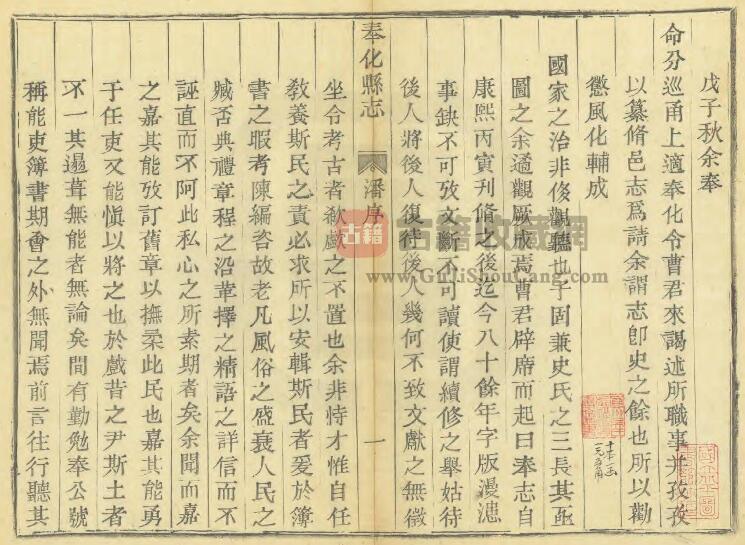 戊子秋余奉
命分巡甬上適奉化令曹君來謁述所職事并孜孜
以纂脩邑志爲請余謂志卽史之餘也所以勸
懲風化輔成
國家之治非侈觀聽也子固兼史氏之三長其亟
圖之余適觀厥成焉曹君辟席而起曰奉志自
康熙丙寅刋脩之後迄今八十餘年字版漫漶
事缺不可攷文斷不可讀使謂續修之舉姑待
後人將後人復待後人幾何不致文獻之無徵
奉化縣志
潘序
一
坐令考古者欷歔之不置也余非恃才惟自任
敎養斯民之責必求所以安輯斯民者爰於簿
書之暇考陳編咨故老凡風俗之盛衰人民之
臧否典禮章程之沿革擇之精語之詳信而不
誣直而不阿此私心之所素期者矣余聞而嘉
之嘉其能攷訂舊章以撫柔此民也嘉其能勇
于任吏又能愼以將之也於戲昔之尹斯土者
不一其遢葺無能者無論矣間有勤勉奉公號
稱能吏簿書期會之外無聞焉前言往行聽其
古籍
古籍收藏网
www.GuJiShouCang.com